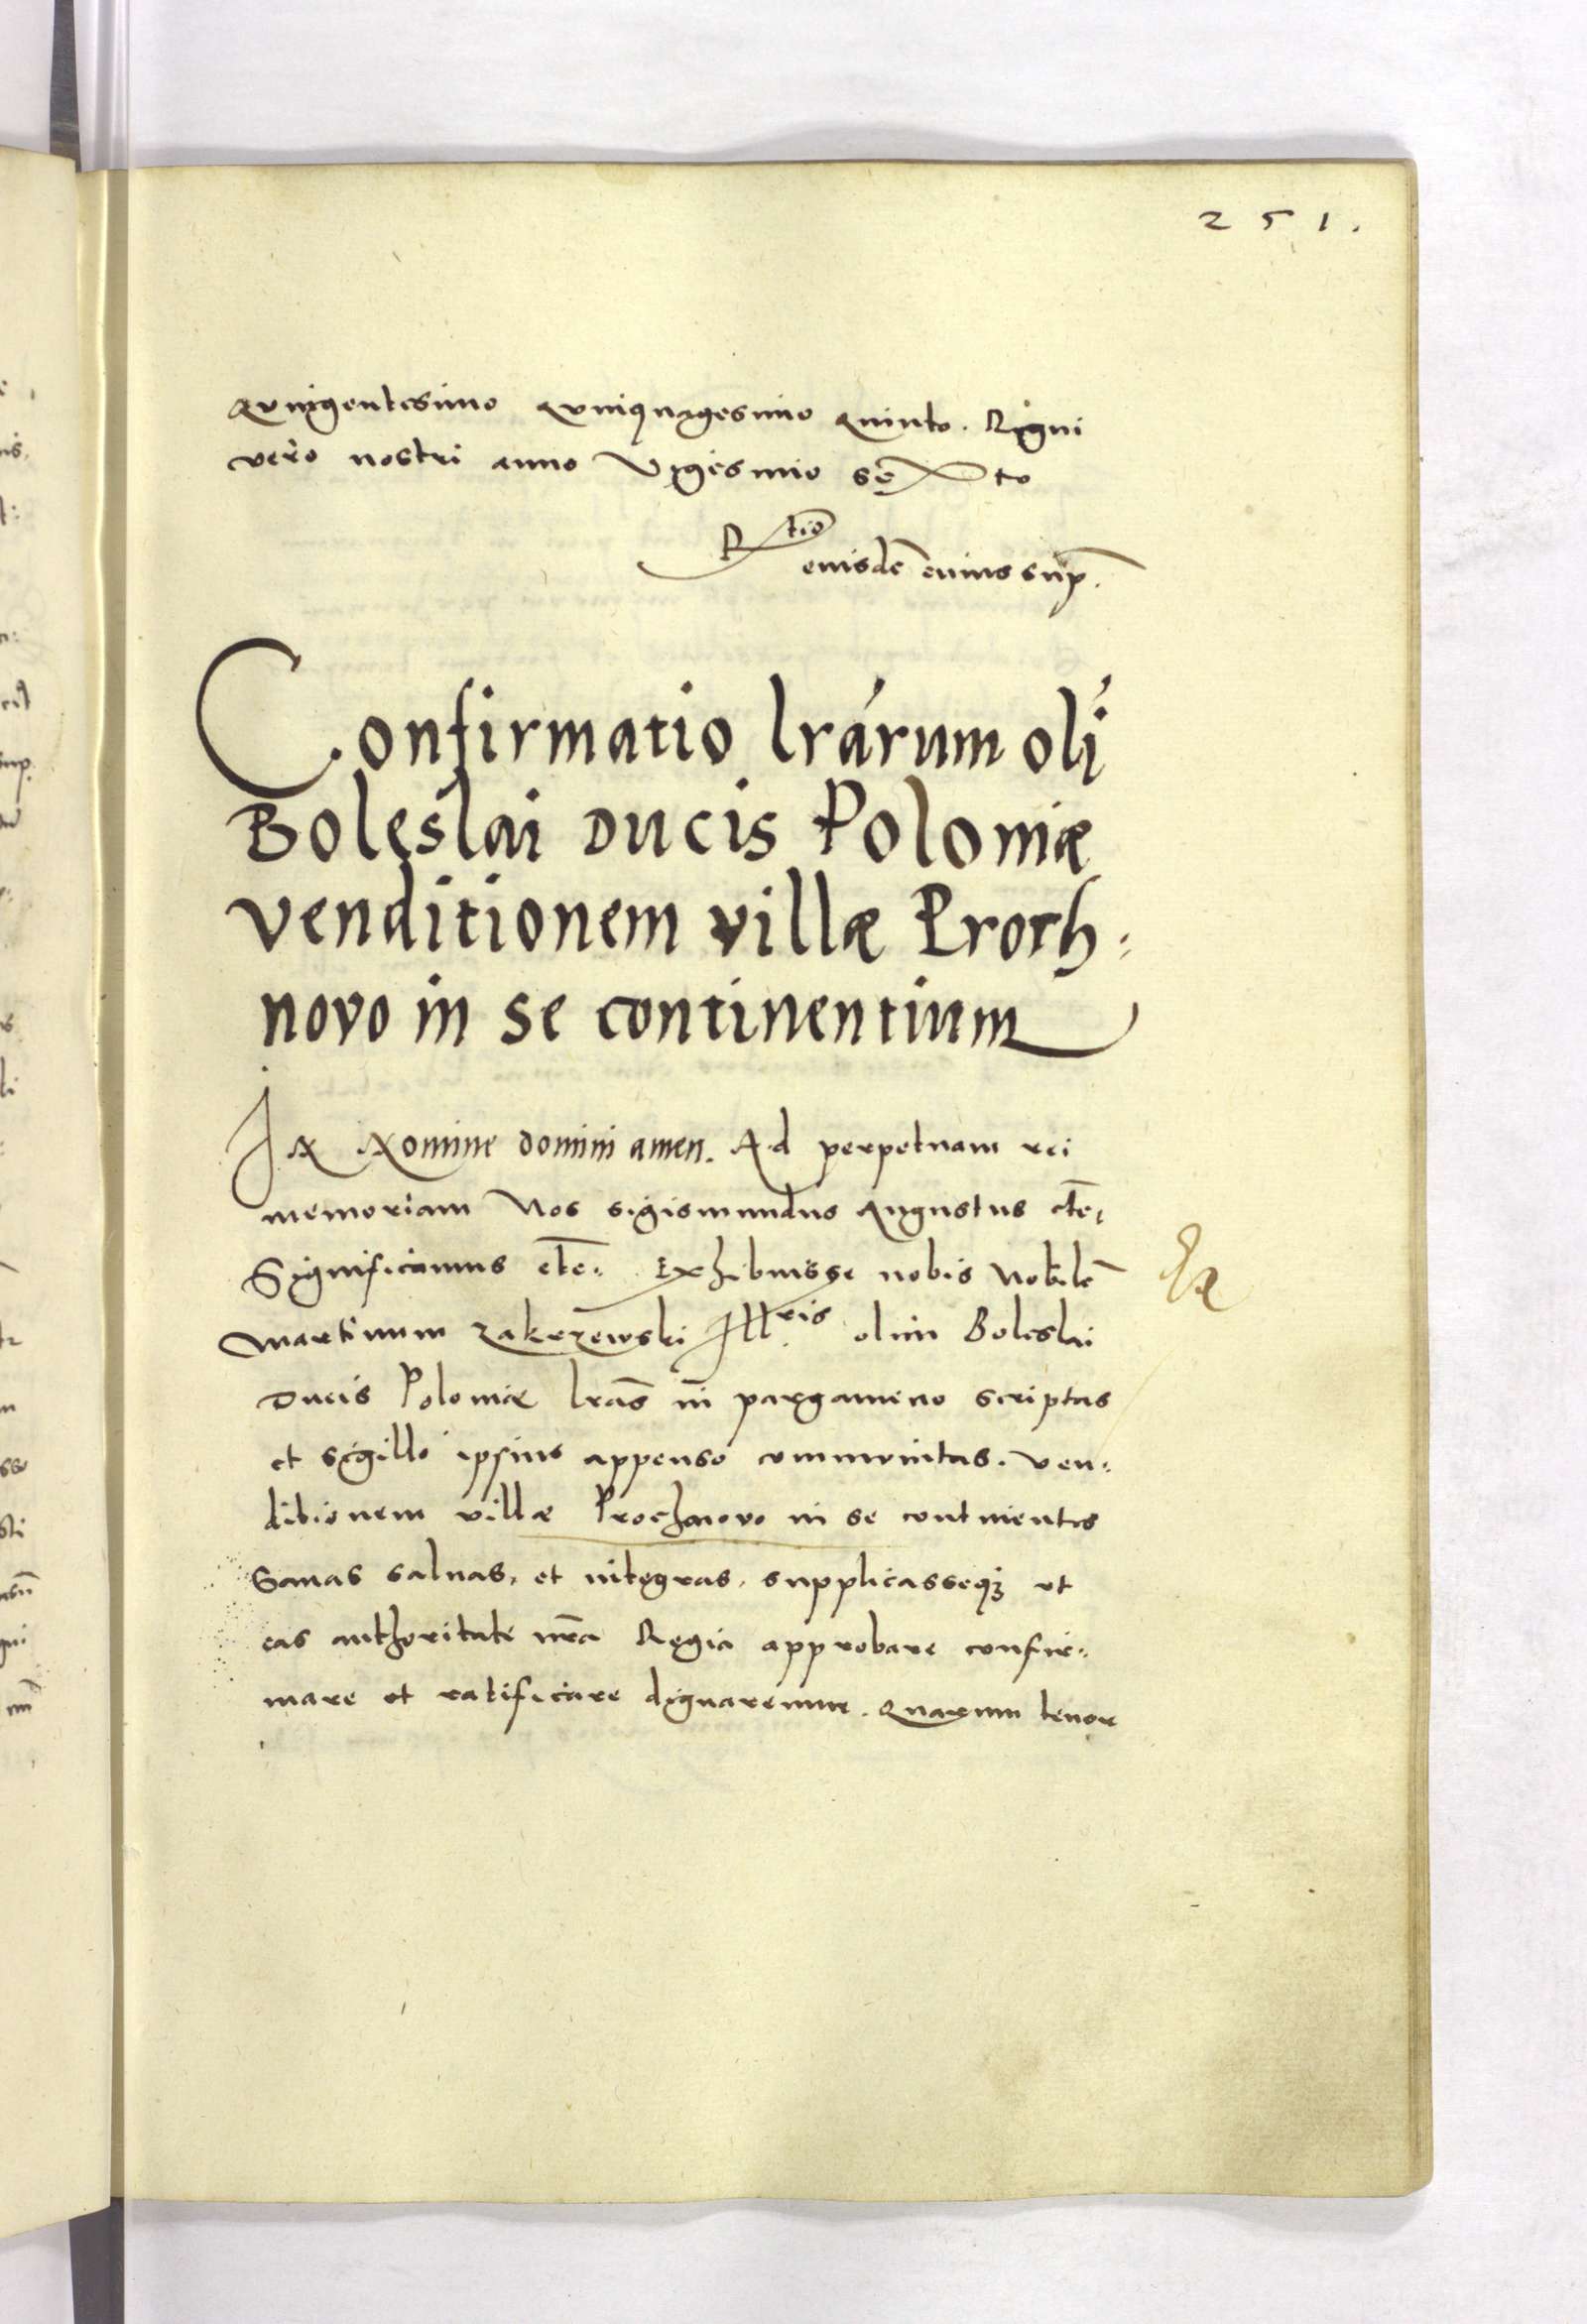 251.
Quingentesimo Quinquagesimo Quinto. Regni
vero nostri anno Vigesimo sexto
R tio
eiusdē cuius sup̄.
Confirmatio lrárum olī
Boleslai Ducis Poloniæ
venditionem villæ Proch⸗
novo in se continentium
In Nomine domini amen. Ad perpetuam rei
memoriam Nos Sigismundus Augustus etc̄.
Significamus etc̄. Exhibuisse nobis Nobilē
Martinum Zakrzewski Ill.ris olim Boleslai
Ducis Poloniæ lrās in pargameno scriptas
et sigillo ipsius appenso communitas. Ven⸗
ditionem villæ Prochnovo in se continentes
Sanas salvas, et integras. supplicasseq₃ ut
eas authoritate nr̄a Regia approbare confir⸗
mare et ratificare dignaremur. Quarum tenor